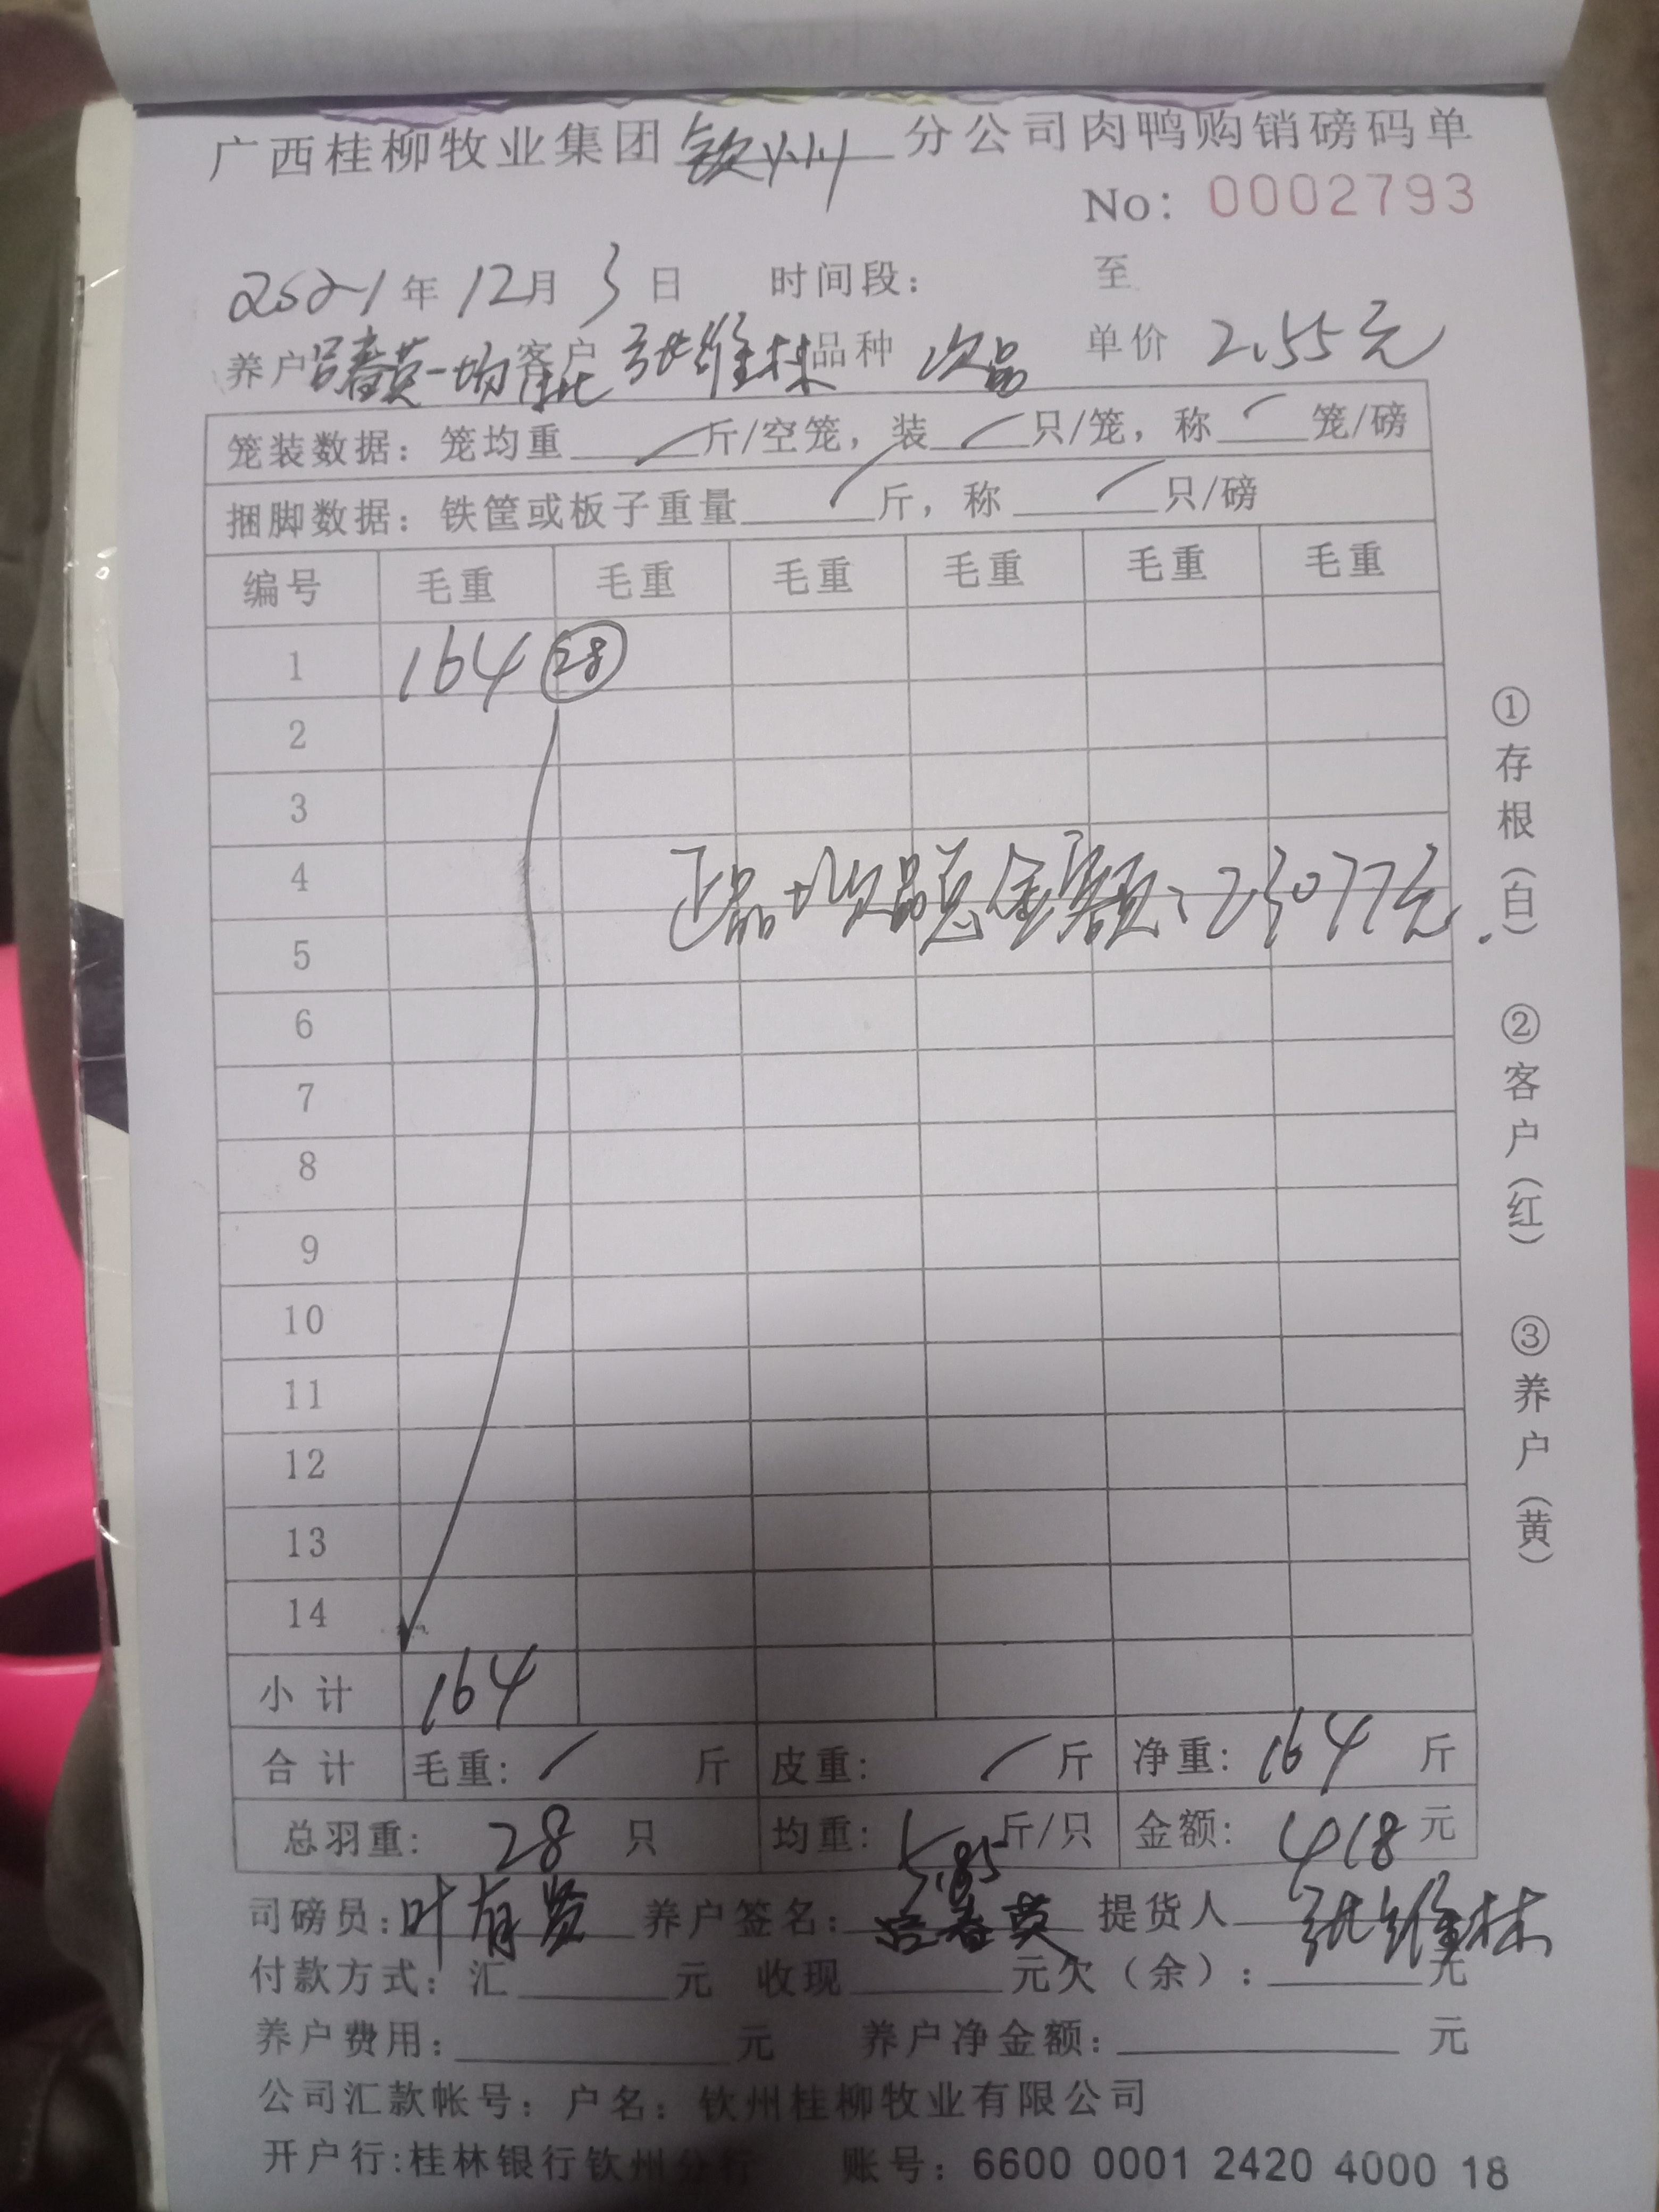 广西桂柳牧业集团 钦州 分公司肉鸭购销磅码单
No: 0002793
2021 年 12 月 3 日 时间段: 至
养户 吕春英一场 客户 张维林 品种 次品 单价 2.55元
笼装数据: 笼均重 斤/空笼, 装 只/笼, 称 笼/磅
捆脚数据: 铁筐或板子重量 斤, 称 只/磅
编号 毛重 毛重 毛重 毛重 毛重 毛重
1 164 28
2
3
4
正品+次品总金额: 23077元.
5
6
7
8
9
10
11
12
13
14
小计 164
合计 毛重: 斤 皮重: 斤 净重: 164 斤
总羽重: 28 只 均重: 5.85 斤/只 金额: 418 元
司磅员: 叶有贤 养户签名: 吕春英 提货人 张维林
付款方式: 汇 元 收现 元 欠(余): 元
养户费用: 元 养户净金额: 元
公司汇款帐号: 户名: 钦州桂柳牧业有限公司
开户行:桂林银行钦州分行 账号: 6600 0001 2420 4000 18
①存根(白) ②客户(红) ③养户(黄)